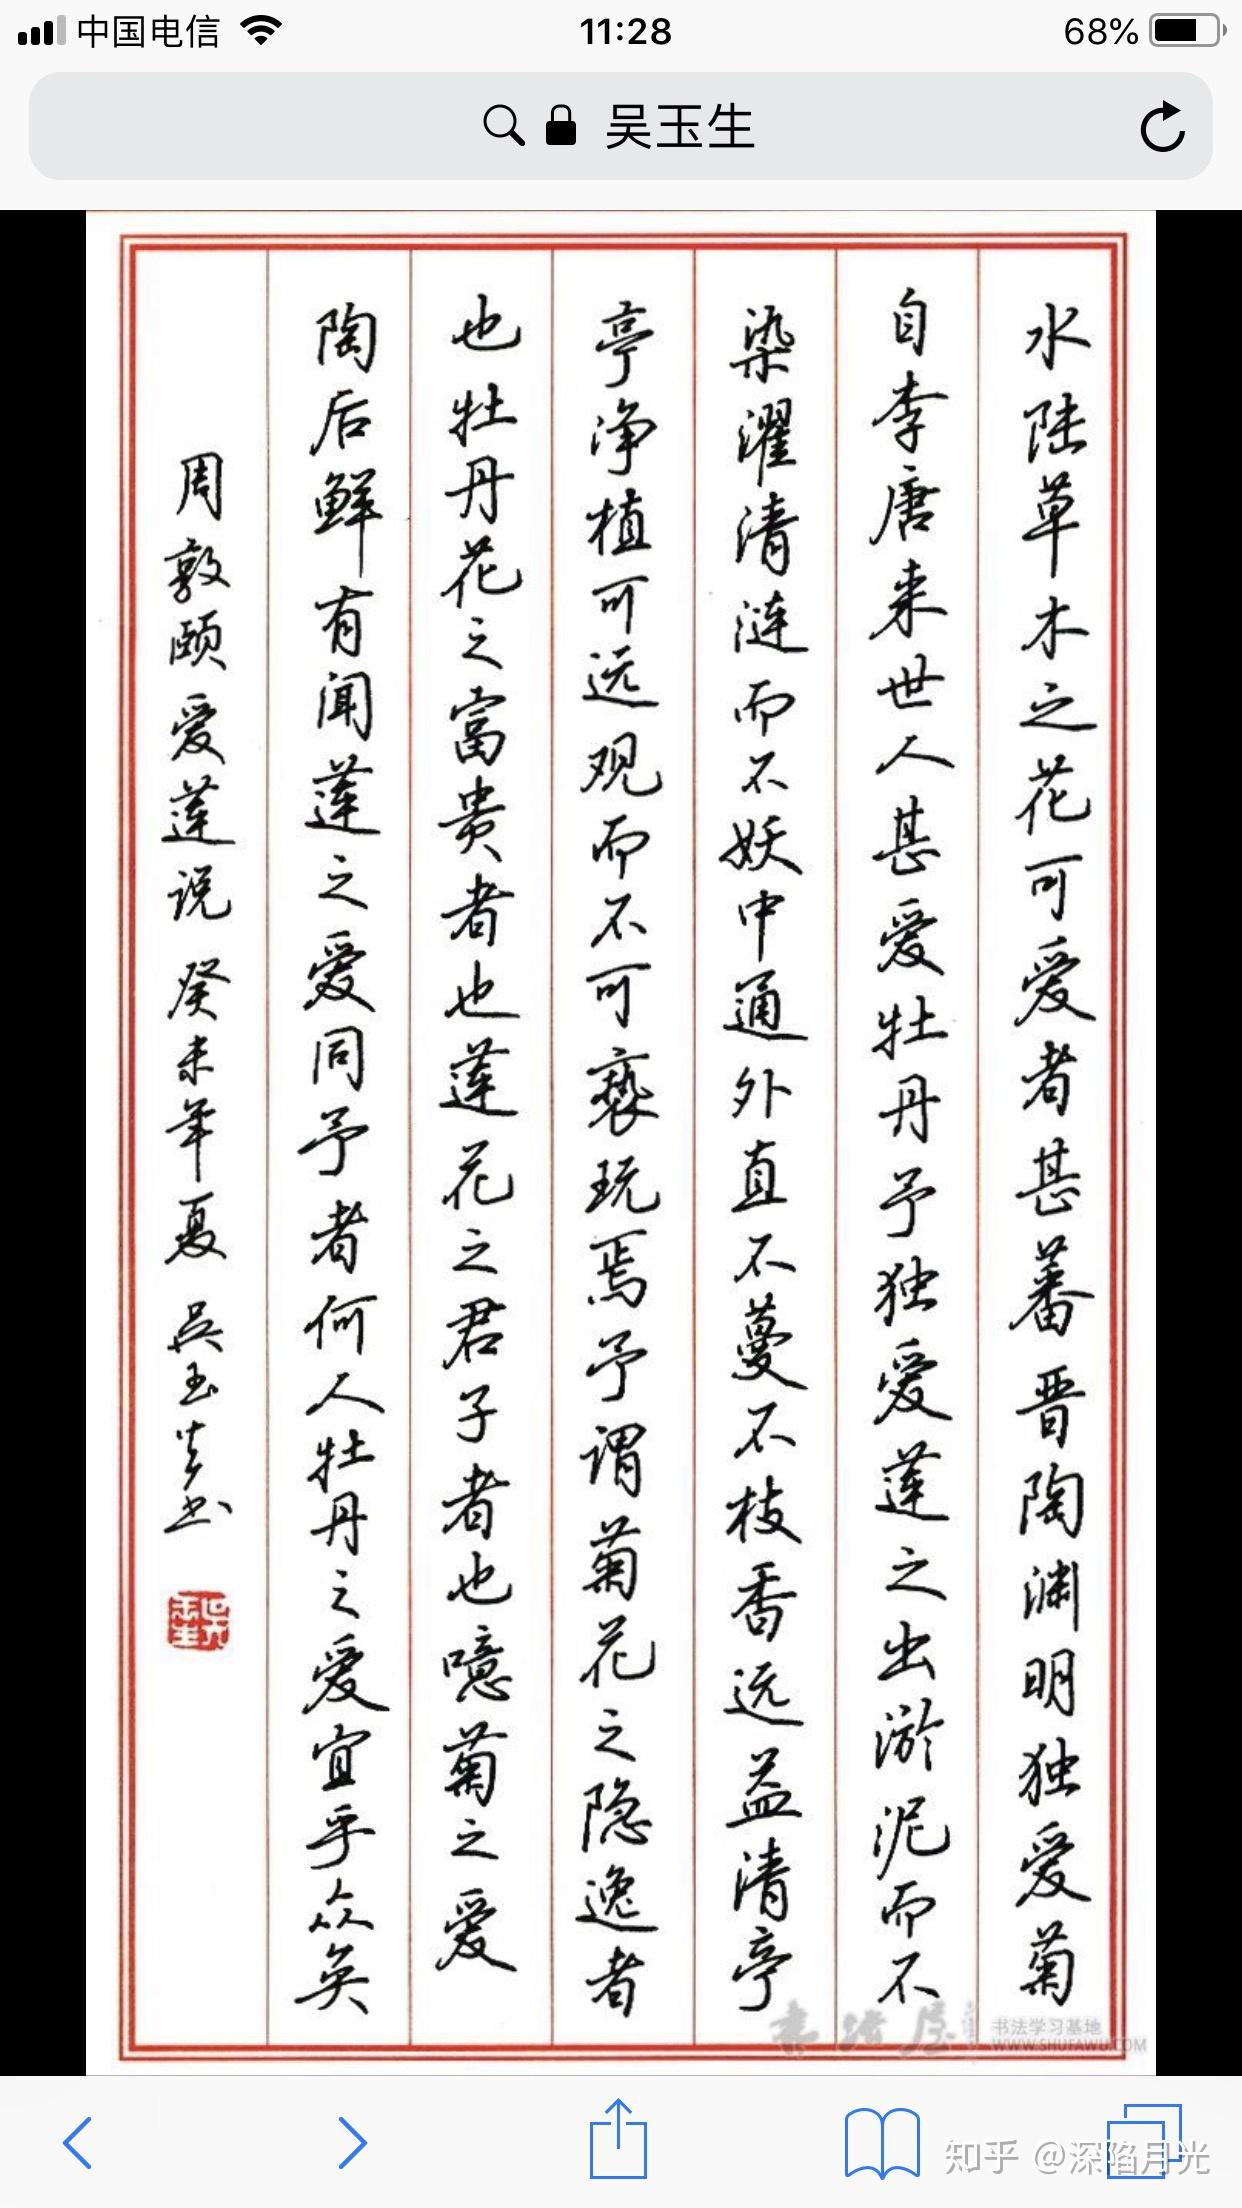 中国电信 11:28 68%
吴玉生
水陆草木之花可爱者甚蕃晋陶渊明独爱菊
自李唐来世人甚爱牡丹予独爱莲之出淤泥而不
染濯清涟而不妖中通外直不蔓不枝香远益清亭
亭净植可远观而不可亵玩焉予谓菊花之隐逸者
也牡丹花之富贵者也莲花之君子者也噫菊之爱
陶后鲜有闻莲之爱同予者何人牡丹之爱宜乎众矣
周敦颐爱莲说 癸未年夏 吴玉生书
吴玉生
书法屋
书法学习基地
WWW.SHUFAWU.COM
知乎 @深陷月光